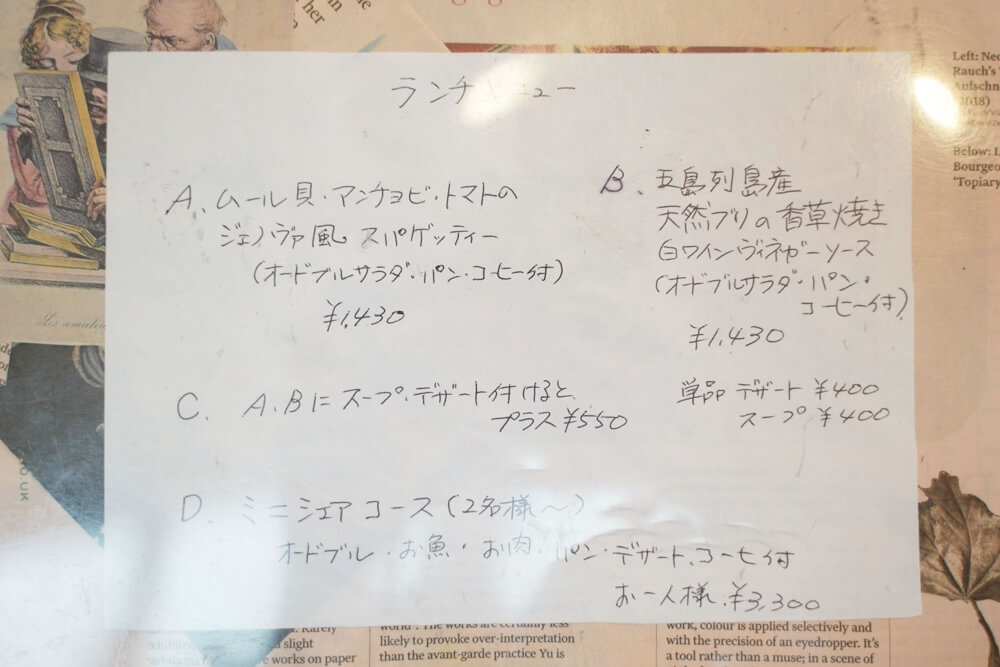 ランチメニュー
A、ムール貝・アンチョビ・トマトの
ジェノヴァ風 スパゲッティー
(オードブルサラダ・パン・コーヒー付)
¥1,430
B、五島列島産
天然ブリの香草焼き
白ワインヴィネガーソース
(オードブルサラダ・パン・
コーヒー付)
¥1,430
C、A.Bにスープ・デザート付けると
プラス¥550
単品 デザート ¥400
スープ ¥400
D、ミニシェアコース(2名様〜)
オードブル・お魚・お肉・パン・デザート、コーヒー付
お一人様、¥3,300
her
Left: Neo
Rauch's
Aufschn
(2018)
Below: L
Bourgeo
'Topiary
CO UK
Rarely
a slight
works on paper
world'. The works are certainly less
likely to provoke over-interpretation
than the avant-garde practice Yu is
work, colour is applied selectively and
with the precision of an eyedropper. It's
a tool rather than a muse; in a scene of